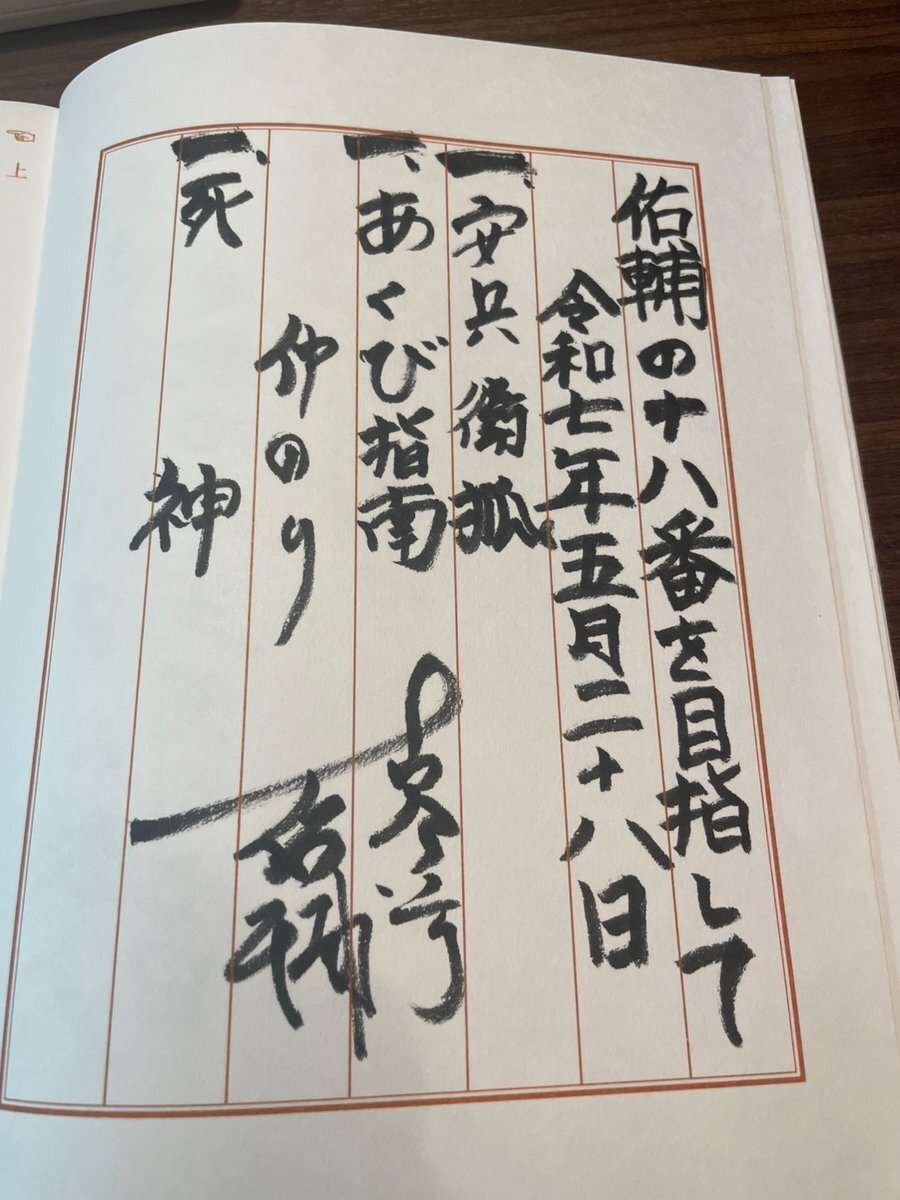 佑輔の十八番を目指して
令和七年五月二十八日
一、安兵衛狐
一、あくび指南
仲のり
一、死神
古今亭
佑輔
上